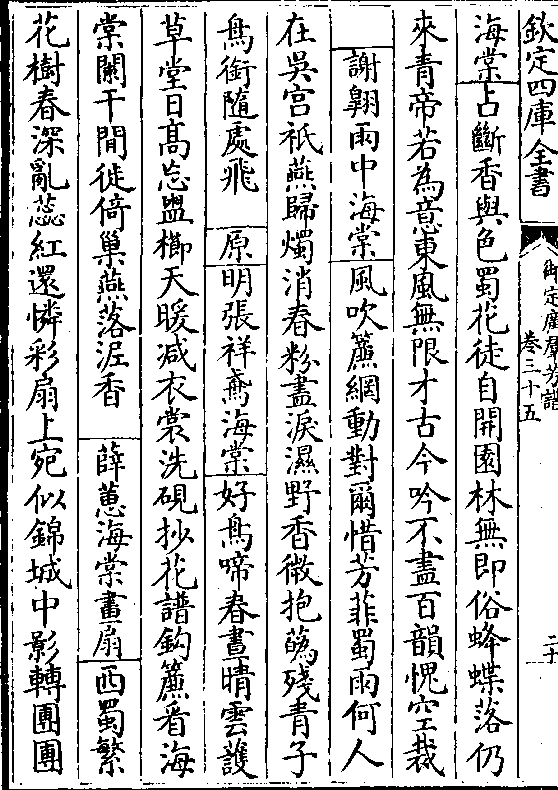 欽定四庫全書
御定廣羣芳譜
卷三十五
二十
海棠占斷香與色蜀花徒自開園林無即俗蜂蝶落仍
來青帝若為意東風無限才古今吟不盡百韻愧空裁
謝翺雨中海棠風吹簾網動對爾惜芳菲蜀雨何人
在吳宫祇燕歸燭消春粉盡淚濕野香微抱蘤殘青子
鳥銜隨處飛 原明張祥鳶海棠好鳥啼春晝晴雲護
草堂日髙忘盥櫛天暖减衣裳洗硯抄花譜鈎簾看海
棠闌干閒徙倚巢燕落泥香 薛蕙海棠畫扇西蜀繁
花樹春深亂蕊紅還憐彩扇上宛似錦城中影轉團團